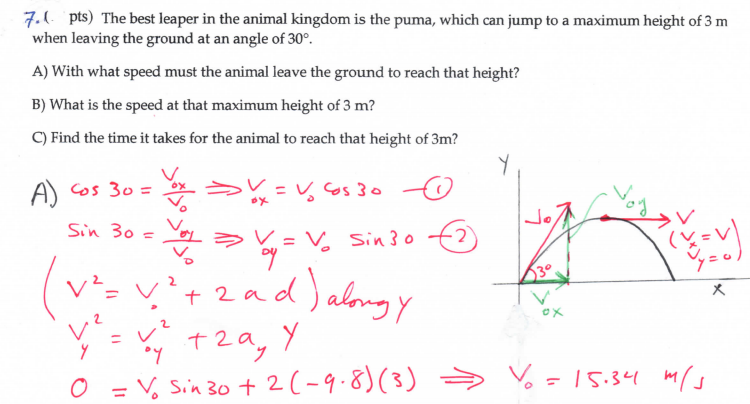 7.( pts) The best leaper in the animal kingdom is the puma, which can jump to a maximum height of 3 m
when leaving the ground at an angle of 30°.
A) With what speed must the animal leave the ground to reach that height?
B) What is the speed at that maximum height of 3 m?
C) Find the time it takes for the animal to reach that height of 3m?
A) cos 30 = Vox/Vo ⇒ Vox = Vo cos 30 —①
Sin 30 = Voy/Vo ⇒ Voy = Vo Sin 30 —②
(V² = Vo² + 2ad) along y
Vy² = Voy² + 2ay Y
0 = Vo Sin 30 + 2(-9.8)(3) ⇒ Vo = 15.34 m/s
Y
Voy
Vo
V
(Vx = V
Vy = 0)
30
Vox
x